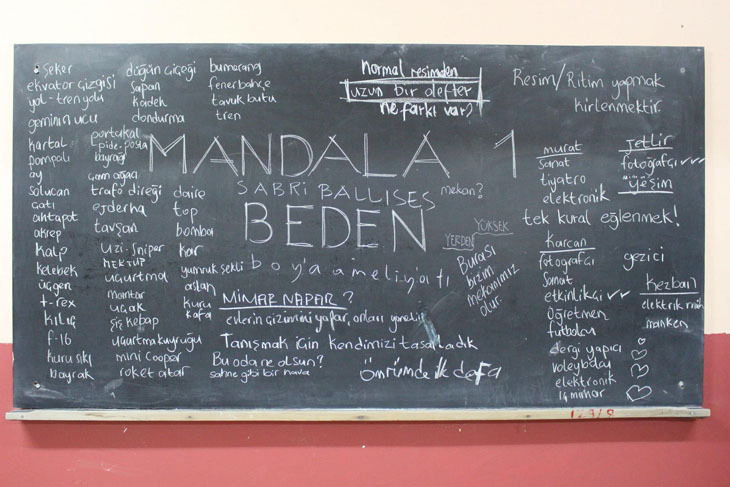 şeker
ekvator çizgisi
yol-tren yolu
geminin ucu
kartal
pompalı
ay
solucan
çatı
ahtapot
akrep
kalp
kelebek
üçgen
t-rex
kılıç
f-16
kuru sıkı
bayrak
düğün çiçeği
sapan
kadeh
dondurma
portakal
pide, pasta
bayrağı
çam ağacı
trafo direği
ejderha
tavşan
uzi-sniper
mektup
uçurtma
mantar
uçak
şiş kebap
uçurtma kuyruğu
mini cooper
roket atar
bumerang
fenerbahçe
tavuk butu
tren
daire
top
bomba
kar
yumruk şekli
aslan
kuru
kafa
normal resimden
uzun bir defter
ne farkı var?
MANDALA 1
SABRİ BALLISES
mekan?
BEDEN
YÜKSEK
YERDEN
boya ameliyatı
Burası
bizim
mekanımız
olur.
MİMAR NAPAR?
evlerin çizimini yapar, onları yönetir
Tanışmak için kendimizi tasarladık
Bu oda ne olsun?
sahne gibi bir hava
ömrümde ilk defa
Resim/Ritim yapmak
kirlenmektir
murat
sanat
tiyatro
elektronik
Jetlir
fotoğrafçı
yeşim
tek kural eğlenmek!
Karcan
fotoğrafçı
sanat
etkinlikçi
öğretmen
futbolcu
dergi yapıcı
voleybolcu
elektronik
iç mimar
gezici
Kezban
manken